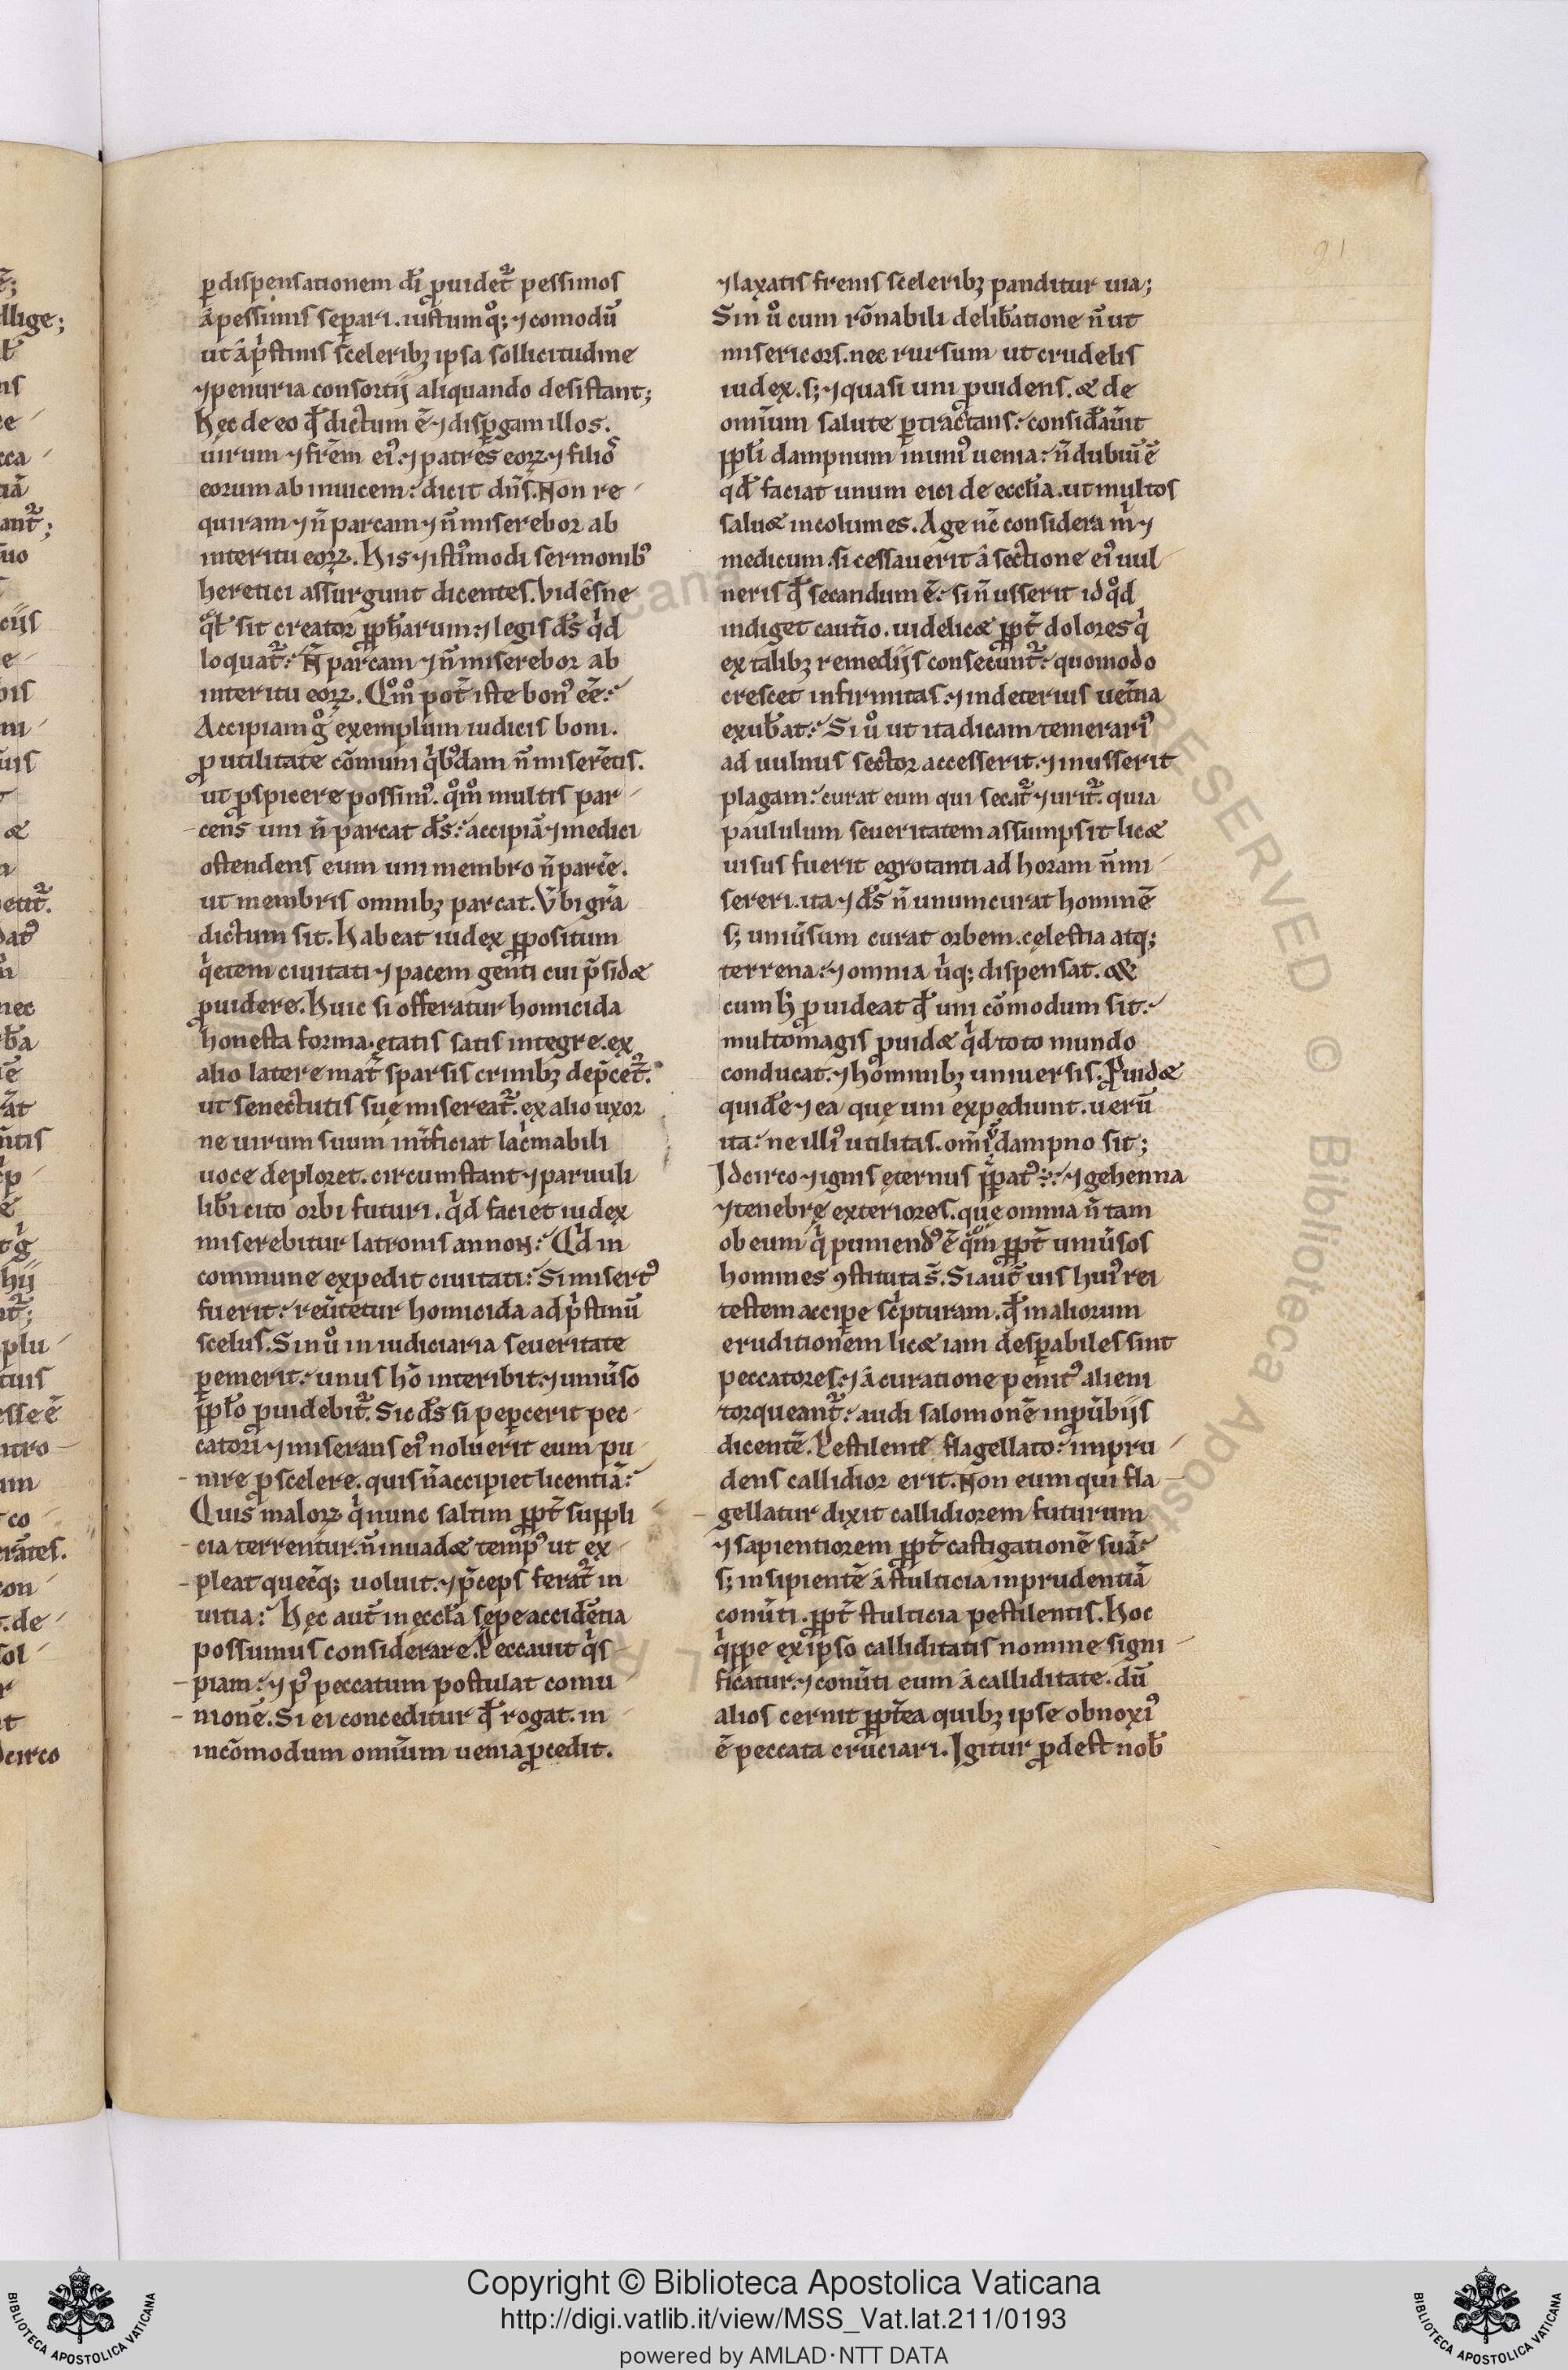 91
ꝑdispensationem dī ꝓuidet᷑ pessimos
a pessimis separi. iustumq; ⁊ comodū
ut a pⁱstinis sceleribꝫ ipsa sollicitudine
⁊ penuria consortij aliquando desistant;
Hęc de eo qđ dictum ē ⁊ dispgam illos.
uirum ⁊ frēm eiꝰ ⁊ patres eoꝝ ⁊ filioˢ
eorum ab inuicem: dicit dn̄s. Non re
quiram ⁊ n̄ parcam ⁊ n̄ miserebor ab
interitu eoꝝ. His ⁊ istiꝰmodi sermonibꝰ
heretici assurgunt dicentes. Vidêsne
qͦł sit creator ꝓph̄arum: ⁊ legis d̄s qⁱd
loquat᷑: N̄ parcam ⁊ n̄ miserebor ab
interitu eoꝝ. Qͦmͦ pot̄ iste bonꝰ eē:
Accipiam gͦ exemplum iudicis boni.
ꝓ utilitate cōmuni qⁱbꝰdam n̄ miserētis.
ut ꝓspicere possimꝰ. qͦmͦ multis par
cens uni n̄ parcat d̄s: accipiā ⁊ medici
ostendens eum uni membro n̄ parcē.
ut membris omnibꝫ parcat. V̄bi grā
dictum sit. Habeat iudex ꝓpositum
qⁱetem ciuitati ⁊ pacem genti cui p̄sidæ
ꝓuidere. Huic si offeratur homicida
honesta forma. etatis satis integre. ex
alio latere mat̄ sparsis crinibꝫ dep̄cet᷑.
ut senectutis suę misereat᷑. ex alio uxor
ne uirum suum int̄ficiat lacⁱmabili
uoce deploret. circumstant ⁊ paruuli
lib̄i cito orbi futuri. qⁱd faciet iudex
miserebitur latronis annon: Qⁱd in
commune expedit ciuitati: Si misertꝰ
fuerit: reūtetur homicida ad pⁱstinū
scelus. Sin uͦ in iudiciaria seueritate
ꝑemerit: unus hō interibit: ⁊ uniūso
ꝓpłō ꝓuidebit᷑. Sic d̄s si peꝑcerit pec
catori ⁊ miserans eiꝰ noluerit eum pu
nire ꝓ scelere. quis n̄ accipiet licentiā:
Quis maloꝝ qⁱ nunc saltim ꝓpt̄ suppli
cia terrentur. n̄ inuadæ tempꝰ ut ex
pleat quęcq; uoluit. ⁊ p̄ceps ferat᷑ in
uitia: Hęc aut̄ in ecclā sępe accidētia
possumus considerare. Peccauit qⁱs
piam: ⁊ pꝰ peccatum postulat comu
nionē. Si ei conceditur qđ rogat. in
incōmodum omnīum uenia ꝓcedit.
⁊ laxatis frenis sceleribꝫ panditur uia;
Sin uͦ cum rōnabili delib̄atione n̄ ut
misericors. nec rursum ut crudelis
iudex. s; ⁊ quasi uni ꝓuidens. æ de
omnīum salute ꝑtractans: consid̄auīt
ꝓpłi dampnum in uniꝰ uenia: n̄ dubiū ē
qđ faciat unum eici de ecclīa. ut multos
saluæ incolumes. Age nc̄ considera m̄ ⁊
medicum. si cessauerit a sectione eiꝰ uul
neris qđ secandum ē: si n̄ usserit id qͦd
indiget cautīo. uidelicæ ꝓpt̄ dolores qⁱ
ex talibꝫ remedijs consecunt᷑: quomodo
crescet infirmitas: ⁊ in deterius uet̄na
exub̄at: Si uͦ ut ita dicam temerariꝰ
ad uulnus sector accesserit. ⁊ inusserit
plagam: curat eum qui secat᷑ ⁊ urit᷑. quia
paululum seueritatem assumpsit licæ
uisus fuerit egrotanti ad horam n̄ mi
sereri. ita ⁊ d̄s n̄ unum curat hominē
s; uniūsum curat orbem. cęlestia atq;
terrena: ⁊ omnia ūⁱq; dispensat. æ
cum hⁱ ꝓuideat qđ uni cōmodum sit:
multomagis ꝓuidæ qⁱd toto mundo
conducat. ⁊ hominibꝫ uniuersis. Ꝓuidæ
quidē ⁊ ea que uni expediunt. uerū
ita: ne illiꝰ utilitas. omīū dampno sit;
Idcirco ⁊ ignis ęternus p̄patꝰ: ⁊ gehenna
⁊ tenebrę exteriores. que omnia n̄ tam
ob eum qⁱ puniendꝰ ē qͦm ꝓpt̄ uniūsos
homines ꝯstituta s̄. Si aut̄ uis huiꝰ rei
testem accipe scⁱpturam. qđ in aliorum
eruditionem licæ iam desꝑabiles sint
peccatores: ⁊ a curatione penitꝰ alieni
torqueant᷑: audi salomonē in ꝓūbijs
dicentē. Pestilentē flagellato: impru
dens callidior erit. Non eum qui fla
gellatur dixit callidiorem futurum
⁊ sapientiorem ꝓpt̄ castigationē suā:
s; insipientē a stulticia inprudentiā
conūti. ꝓpt̄ stulticia pestilentis. Hoc
qⁱppe ex ipso calliditatis nomine signi
ficatur: ⁊ conūti eum a calliditate. dū
alios cernit ꝓpt̄ea quibꝫ ipse obnoxiꝰ
ē peccata cruciari. Igitur ꝓdest nob̄
Copyright © Biblioteca Apostolica Vaticana
http://digi.vatlib.it/view/MSS_Vat.lat.211/0193
powered by AMLAD·NTT DATA
BIBLIOTECA APOSTOLICA VATICANA
BIBLIOTECA APOSTOLICA VATICANA